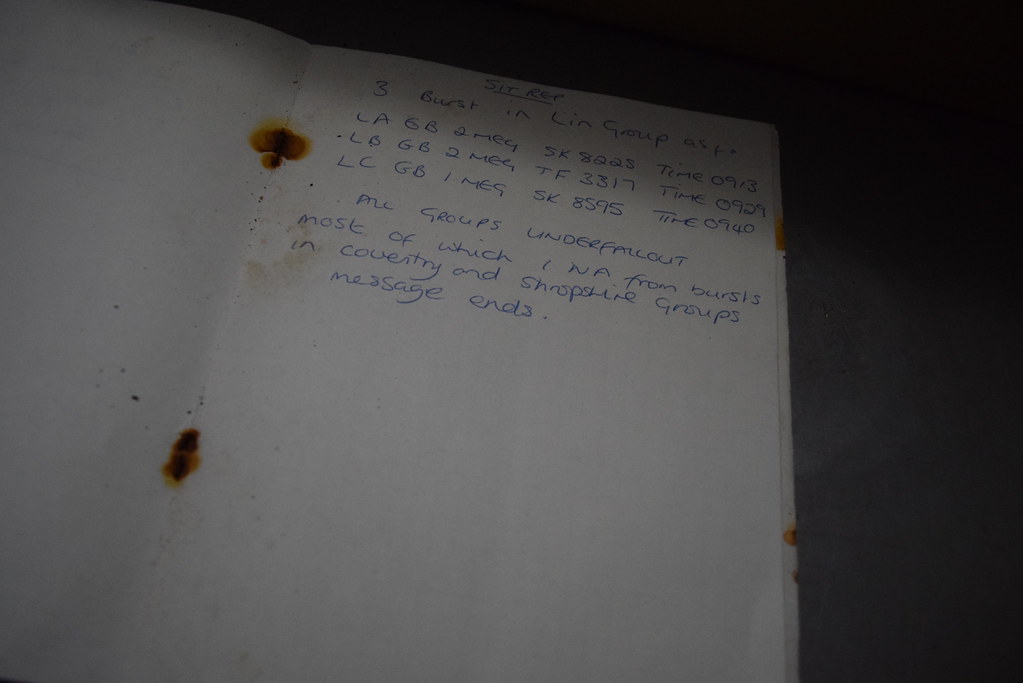 SIT REP
3 Burst in Lin Group as f.
LA GB 2 MEG SK 8225 TIME 0913
LB GB 2 MEG TF 3317 TIME 0929
LC GB 1 MEG SK 8595 TIME 0940
ALL GROUPS UNDERFALLOUT
most of which from bursts
in Coventry and Shropshire Groups
message ends.